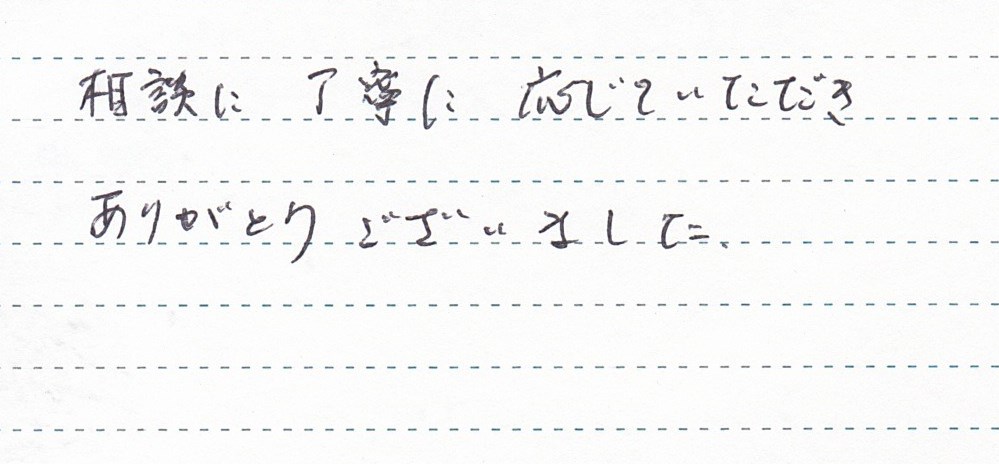 相談に 丁寧に 応じていただき
ありがとうございました、